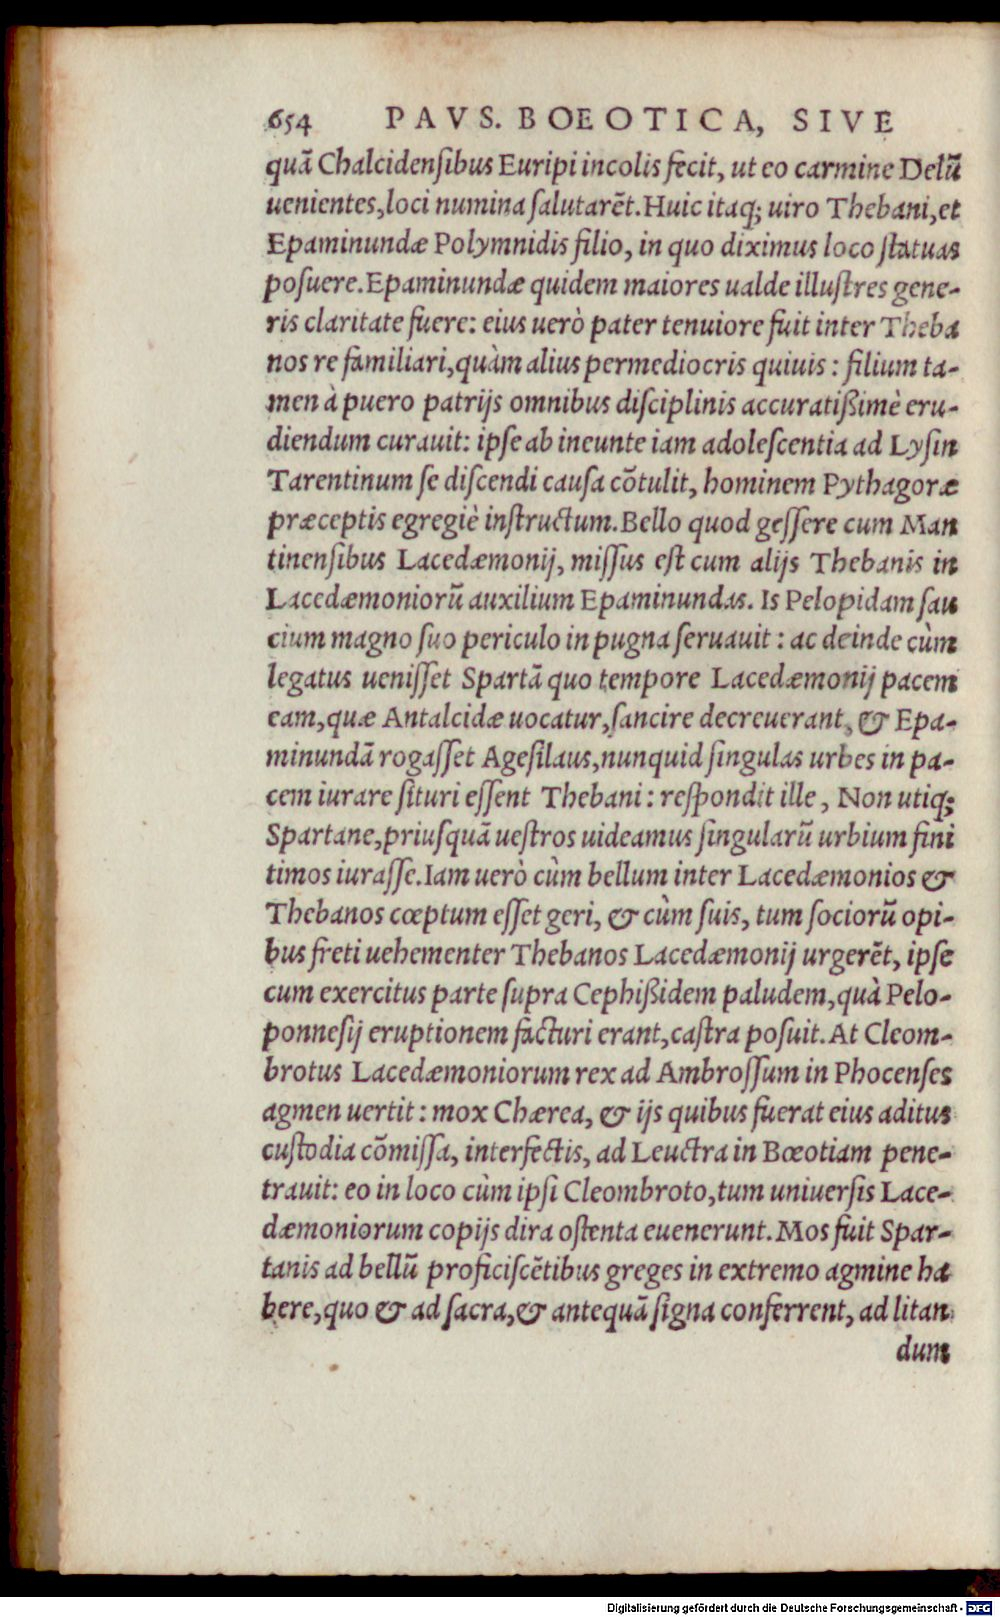 654 PAVS. BOEOTICA, SIVE
quã Chalcidenſibus Euripi incolis fecit, ut eo carmine Delũ
uenientes, loci numina ſalutarẽt. Huic itaq; uiro Thebani, et
Epaminundæ Polymnidis filio, in quo diximus loco ſtatuas
poſuere. Epaminundæ quidem maiores ualde illuſtres gene-
ris claritate fuere: eius uerò pater tenuiore fuit inter Theba
nos re familiari, quàm alius permediocris quiuis: filium ta-
men à puero patrijs omnibus diſciplinis accuratißimè eru-
diendum curauit: ipſe ab ineunte iam adoleſcentia ad Lyſin
Tarentinum ſe diſcendi cauſa cõtulit, hominem Pythagoræ
præceptis egregiè inſtructum. Bello quod geſſere cum Man
tinenſibus Lacedæmonij, miſſus eſt cum alijs Thebanis in
Lacedæmoniorũ auxilium Epaminundas. Is Pelopidam ſau
cium magno ſuo periculo in pugna ſeruauit: ac deinde cùm
legatus ueniſſet Spartã quo tempore Lacedæmonij pacem
eam, quæ Antalcidæ uocatur, ſancire decreuerant, & Epa-
minundã rogaſſet Ageſilaus, nunquid ſingulas urbes in pa-
cem iurare ſituri eſſent Thebani: reſpondit ille, Non utiq;
Spartane, priuſquã ueſtros uideamus ſingularũ urbium fini
timos iuraſſe. Iam uerò cùm bellum inter Lacedæmonios &
Thebanos cœptum eſſet geri, & cùm ſuis, tum ſociorũ opi-
bus freti uehementer Thebanos Lacedæmonij urgerẽt, ipſe
cum exercitus parte ſupra Cephißidem paludem, quà Pelo-
ponneſij eruptionem facturi erant, caſtra poſuit. At Cleom-
brotus Lacedæmoniorum rex ad Ambroſſum in Phocenſes
agmen uertit: mox Chærea, & ijs quibus fuerat eius aditus
cuſtodia cõmiſſa, interfectis, ad Leuctra in Bœotiam pene-
trauit: eo in loco cùm ipſi Cleombroto, tum uniuerſis Lace-
dæmoniorum copijs dira oſtenta euenerunt. Mos fuit Spar-
tanis ad bellũ proficiſcẽtibus greges in extremo agmine ha
bere, quo & ad ſacra, & antequã ſigna conferrent, ad litan
dum
Digitalisierung gefördert durch die Deutsche Forschungsgemeinschaft - DFG